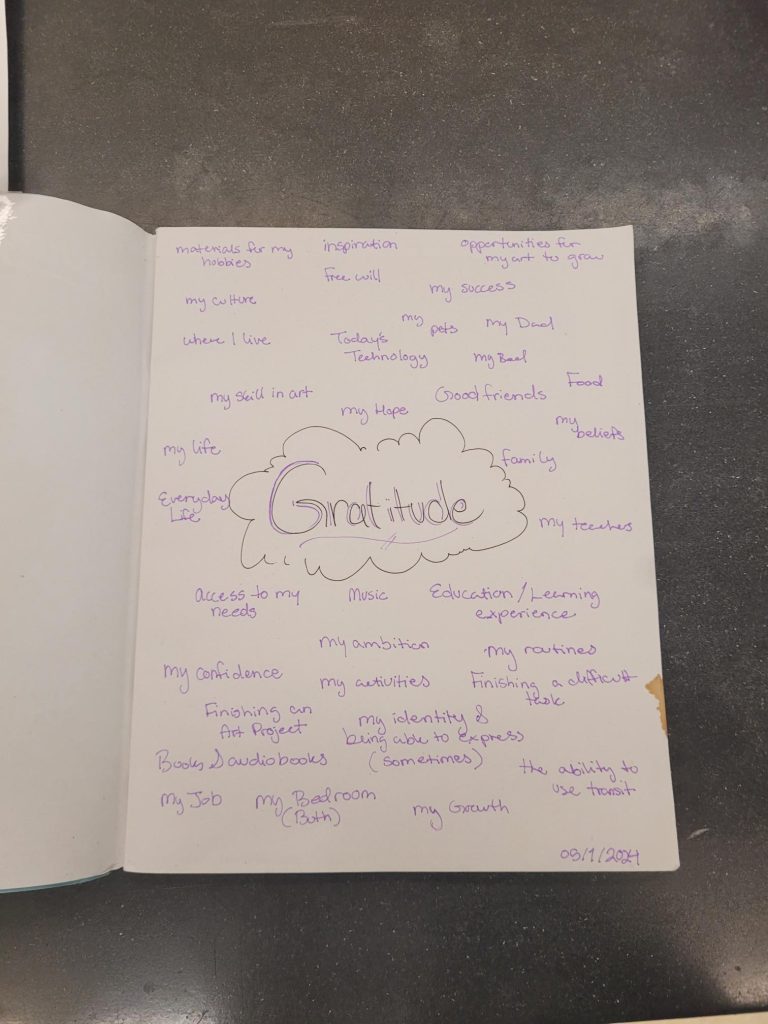 materials for my
hobbies
inspiration
opportunities for
my art to grow
free will
my success
my culture
my
pets
my Dad
where I live
Today's
Technology
my Bed
Food
my skill in art
Good friends
my Hope
my
beliefs
my life
family
Everyday
Life
Gratitude
my teaches
access to my
needs
Music
Education / Learning
experience
my ambition
my routines
my confidence
my activities
Finishing a difficult
task
Finishing an
Art Project
my identity &
being able to express
(sometimes)
Books & audiobooks
the ability to
use transit
My Job
my Bedroom
(Both)
my Growth
/1/2024